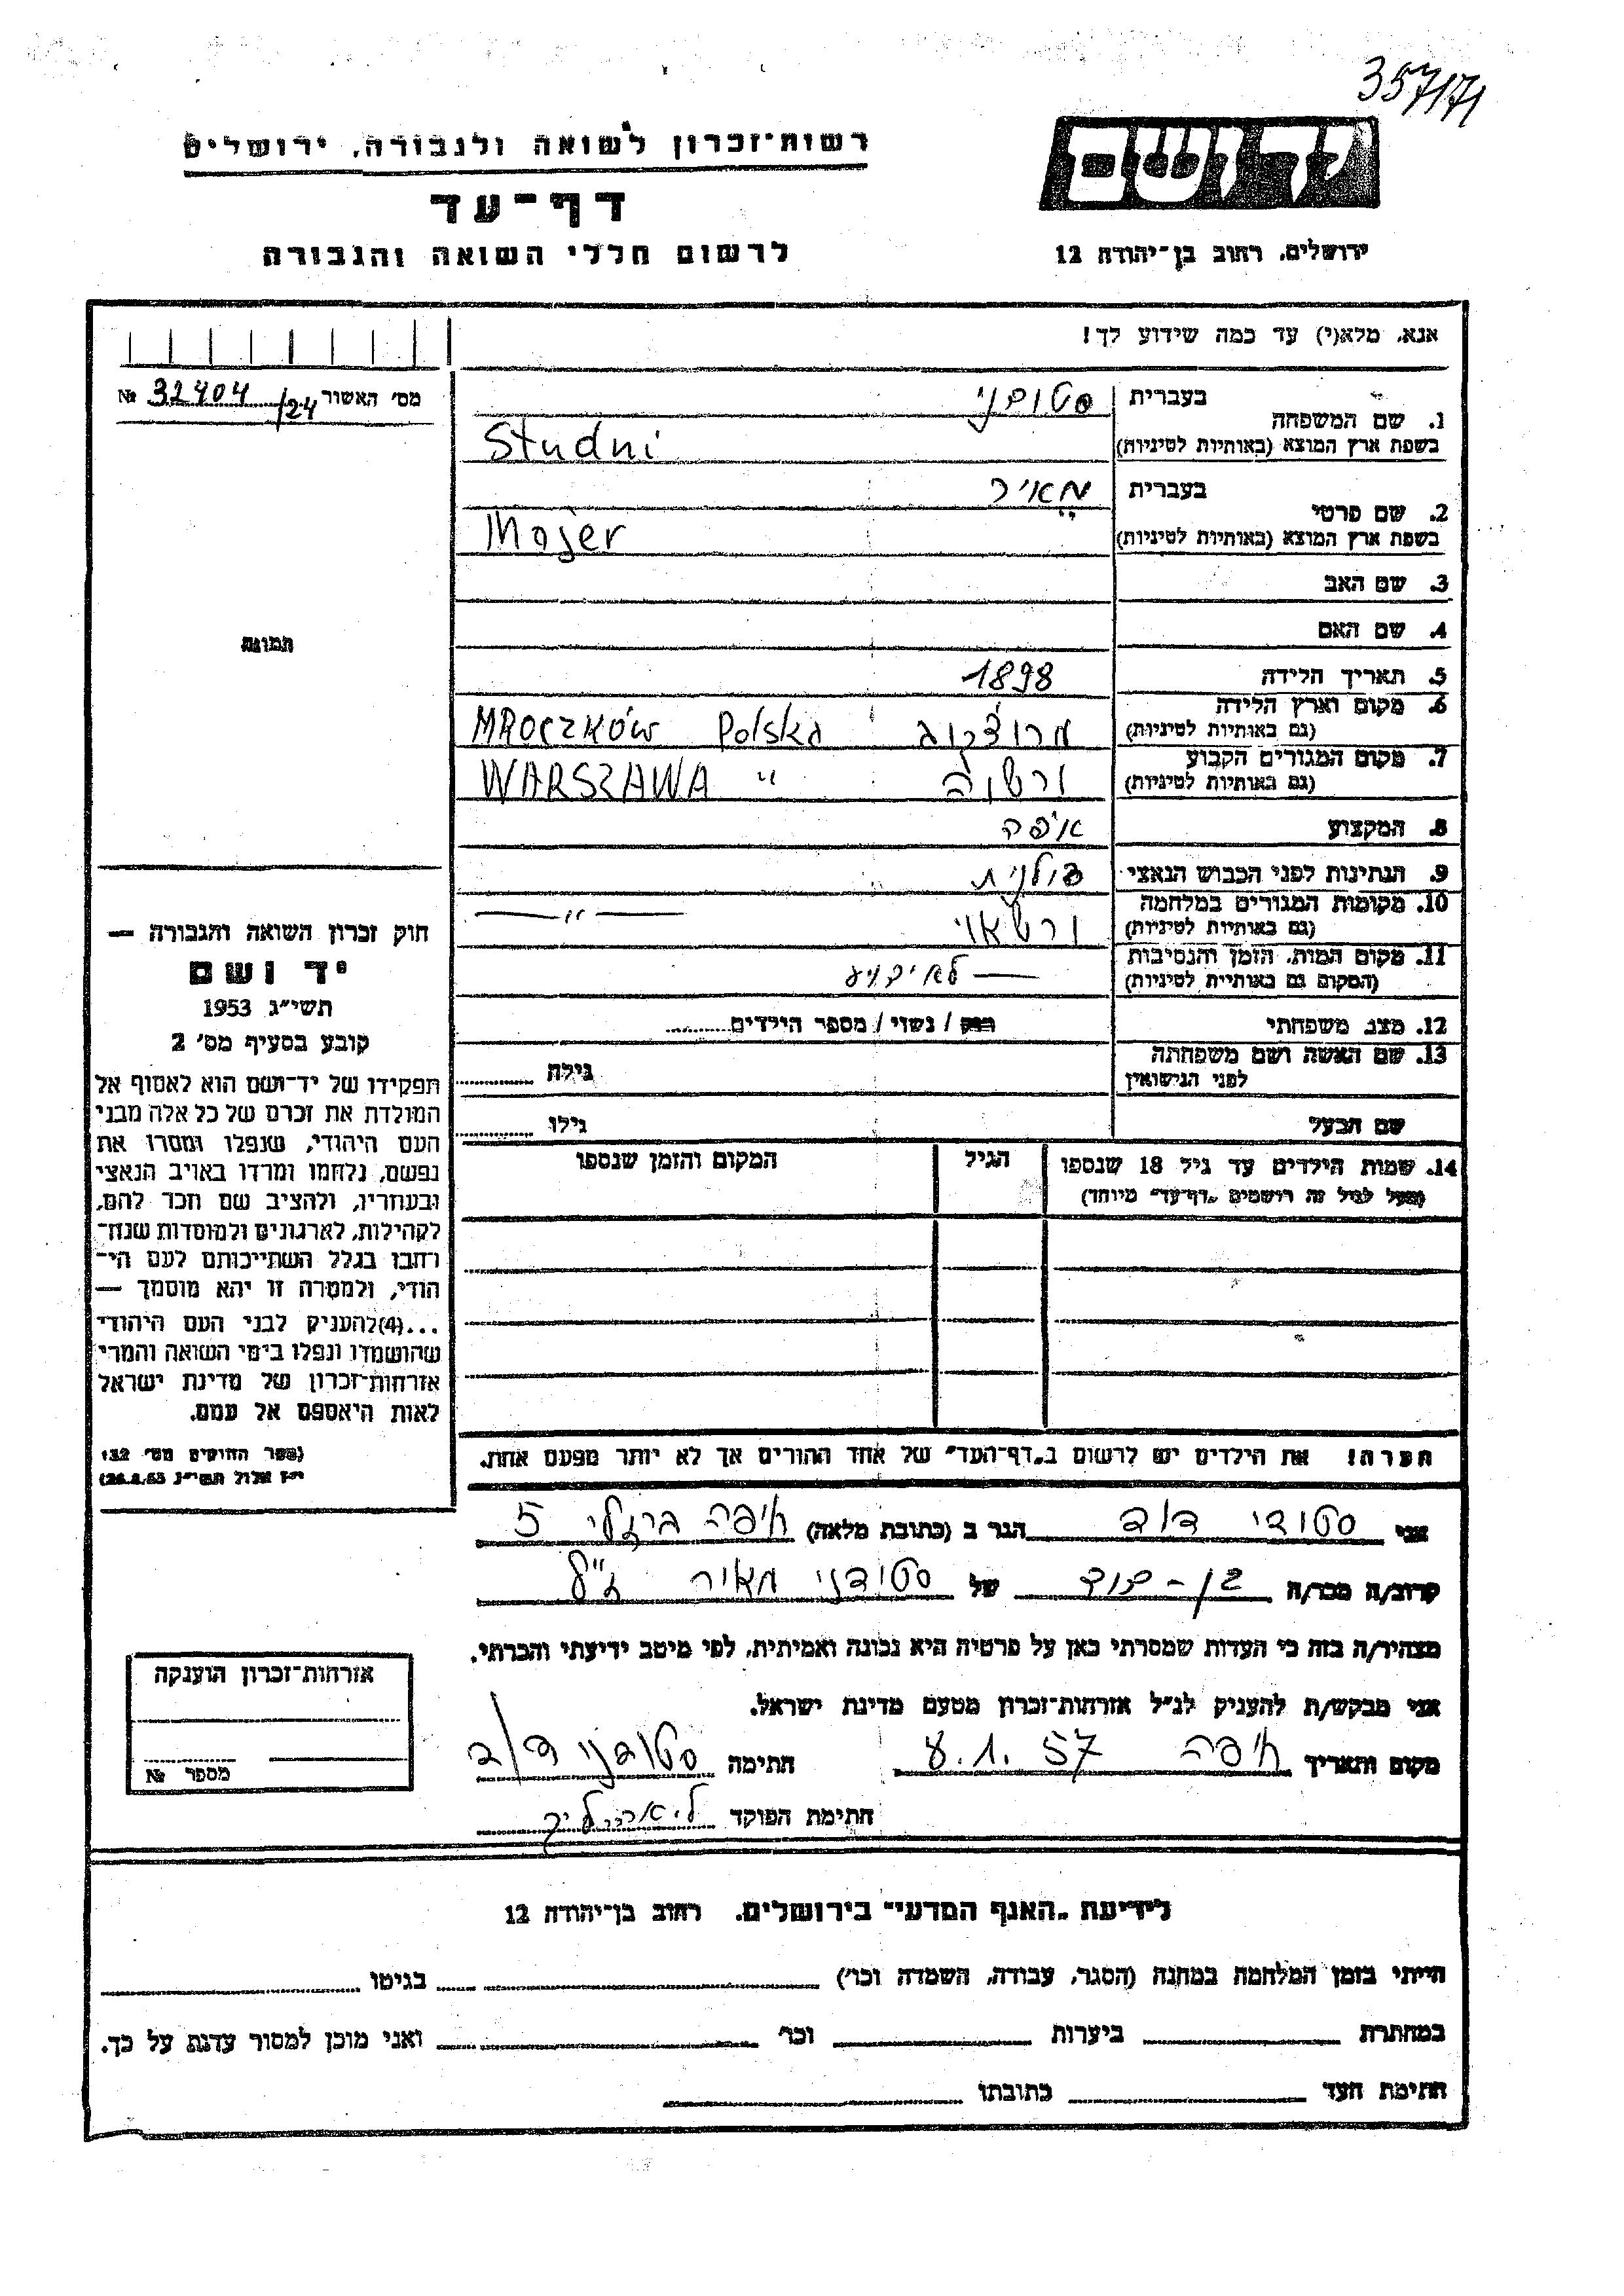 357171
רשות־זכרון לשואה ולגבורה, ירושלים
דף־עד
לרשום חללי השואה והגבורה
יד ושם
ירושלים, רחוב בן־יהודה 12
אנא, מלא(י) עד כמה שידוע לך!
מס׳ האשור 32404/24 №
תמונה
1. שם המשפחה בעברית סטודני
בשפת ארץ המוצא (באותיות לטיניות) Studni
2. שם פרטי בעברית מאיר
בשפת ארץ המוצא (באותיות לטיניות) Majer
3. שם האב
4. שם האם
5. תאריך הלידה 1898
6. מקום וארץ הלידה
(גם באותיות לטיניות) מרוצ׳קוב MROCZKÓW Polska
7. מקום המגורים הקבוע
(גם באותיות לטיניות) ורשה WARSZAWA "
8. המקצוע אופה
9. הנתינות לפני הכבוש הנאצי פולנית
10. מקומות המגורים במלחמה
(גם באותיות לטיניות) — " —
11. מקום המות, הזמן והנסיבות
(המקום גם באותיות לטיניות) — לא ידוע
12. מצב משפחתי רווק / נשוי / מספר הילדים
13. שם האשה ושם משפחתה
לפני הנישואין גילה
שם הבעל גילו
14. שמות הילדים עד גיל 18 שנספו הגיל המקום והזמן שנספו
(מעל לגיל זה רושמים „דף־עד" מיוחד)
הערה! את הילדים יש לרשום ב„דף־העד" של אחד ההורים אך לא יותר מפעם אחת.
חוק זכרון השואה והגבורה —
יד ושם
תשי״ג 1953
קובע בסעיף מס׳ 2
תפקידו של יד־ושם הוא לאסוף אל
המולדת את זכרם של כל אלה מבני
העם היהודי, שנפלו ומסרו את
נפשם, נלחמו ומרדו באויב הנאצי
ובעוזריו, ולהציב שם וזכר להם,
לקהילות, לארגונים ולמוסדות שנח־
רחבו בגלל השתייכותם לעם הי־
הודי, ולמטרה זו יהא מוסמך —
...(4)להעניק לבני העם היהודי
שהושמדו ונפלו בימי השואה והמרי
אזרחות־זכרון של מדינת ישראל
לאות היאספם אל עמם.
(ספר החוקים מס׳ 132
י״ז אלול תשי״ג 26.8.53)
אני סטודני דוד הגר ב (כתובת מלאה) חיפה ברזלי 5
קרוב/ה מכר/ה בן-דוד של סטודני מאיר ז״ל
מצהיר/ה בזה כי העדות שמסרתי כאן על פרטיה היא נכונה ואמיתית, לפי מיטב ידיעתי והכרתי.
אני מבקש/ת להעניק לנ״ל אזרחות־זכרון מטעם מדינת ישראל.
מקום ותאריך חיפה 8.1.57 חתימה סטודני דוד
חתימת הפוקד
אזרחות־זכרון הוענקה
מספר №
לידיעת „האגף המדעי" בירושלים, רחוב בן־יהודה 12
הייתי בזמן המלחמה במחנה (הסגר, עבודה, השמדה וכו׳) בגיטו
במחתרת ביערות וכו׳ ואני מוכן למסור עדות על כך.
חתימת העד כתובתו